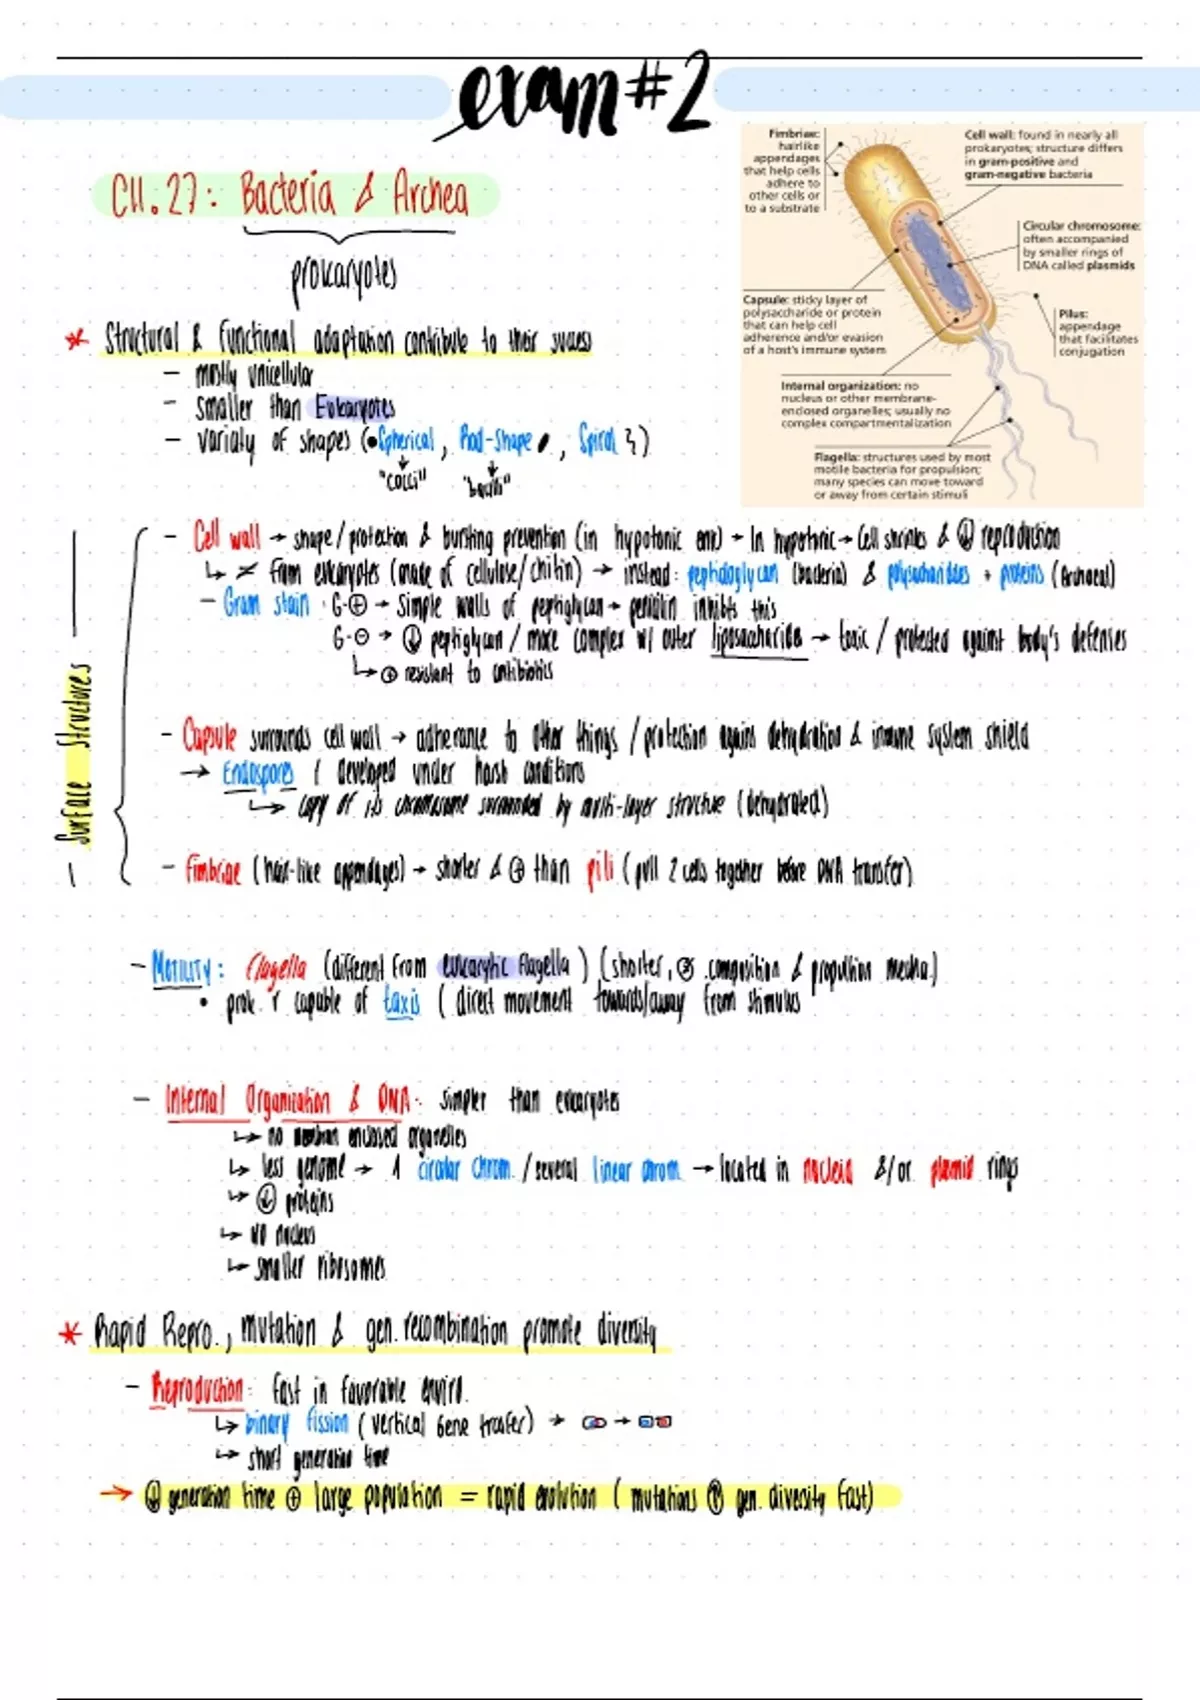 exam#2
CH.27: Bacteria & Archea
prokaryotes
Fimbriae:
hairlike
appendages
that help cells
adhere to
other cells or
to a substrate
Cell wall: found in nearly all
prokaryotes; structure differs
in gram-positive and
gram-negative bacteria
Circular chromosome:
often accompanied
by smaller rings of
DNA called plasmids
Capsule: sticky layer of
polysaccharide or protein
that can help cell
adherence and/or evasion
of a host's immune system
Pilus:
appendage
that facilitates
conjugation
Internal organization: no
nucleus or other membrane-
enclosed organelles; usually no
complex compartmentalization
Flagella: structures used by most
motile bacteria for propulsion;
many species can move toward
or away from certain stimuli
* Structural & functional adaptation contribute to their success
- mostly unicellular
- smaller than Eukaryotes
- variaty of shapes (•Spherical, Rod-shape, Spiral)
"cocci" "bacilli"
- Surface Structures
- Cell wall → shape/protection & bursting prevention (in hypotonic env) → In hypertonic → Cell shrinks & ↓ reproduction
↳ ≠ from eukaryotes (made of cellulose/chitin) → instead: peptidoglycan (bacteria) & polysacharides + proteins (Archaeal)
- Gram stain: G-⊕ → Simple walls of peptiglycan → penicilin inhibits this
G-⊖ → ↓ peptiglycan / more complex w/ outer liposaccharide → toxic / protected against body's defenses
↳ ⊕ resistant to antibiotics
- Capsule surrounds cell wall → adherance to other things / protection agains dehydration & immune system shield
→ Endospores ( developed under harsh conditions
↳ copy of its chromosome surrounded by multi-layer structure (dehydrated)
- Fimbriae (hair-like appendages) → shorter & ⊕ than pili (pull 2 cells together before DNA transfer)
- MOTILITY: Flagella (different from eukarytic flagella) (shorter, composition & propultion mecha.)
• prok. r capable of taxis ( direct movement towards/away from stimulus
- Internal Organization & DNA: simpler than eukaryotes
↳ no enclosed organelles
↳ less genome → 1 circular chrom. / several linear chrom → located in nucleid &/or plasmid rings
↳ ↓ proteins
↳ no nucleus
↳ smaller ribosomes
* Rapid Repro., mutation & gen. recombination promote diversity
- Reproduction: fast in favorable enviro.
↳ binary fission (vertical Gene trasfer) →
↳ short generation time
→ ↓ generation time ⊕ large population = rapid evolution ( mutations ↑ gen. diversity fast)